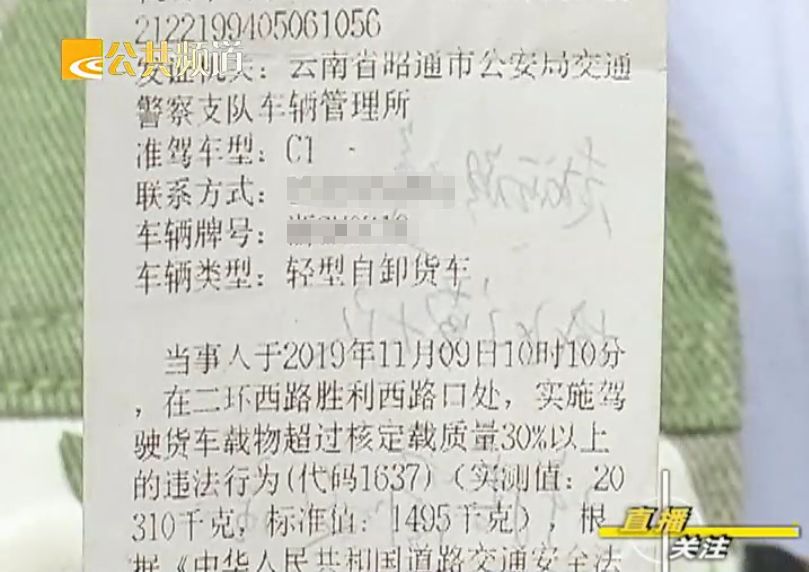 21221994050 61056
公共频道
发证机关：云南省昭通市公安局交通
警察支队车辆管理所
准驾车型：C1
联系方式：
车辆牌号：浙
车辆类型：轻型自卸货车
当事人于2019年11月09日10时10分
，在二环西路胜利西路口处，实施驾
驶货车载物超过核定载质量30%以上
的违法行为(代码1637)（实测值：20
310千克，标准值：1495千克），根
据《中华人民共和国道路交通安全法
直播
关注